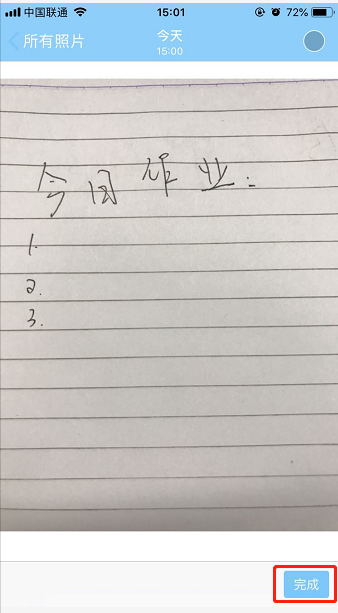 中国联通 15:01 72%
所有照片 今天
15:00
今日作业:
1.
2.
3.
完成